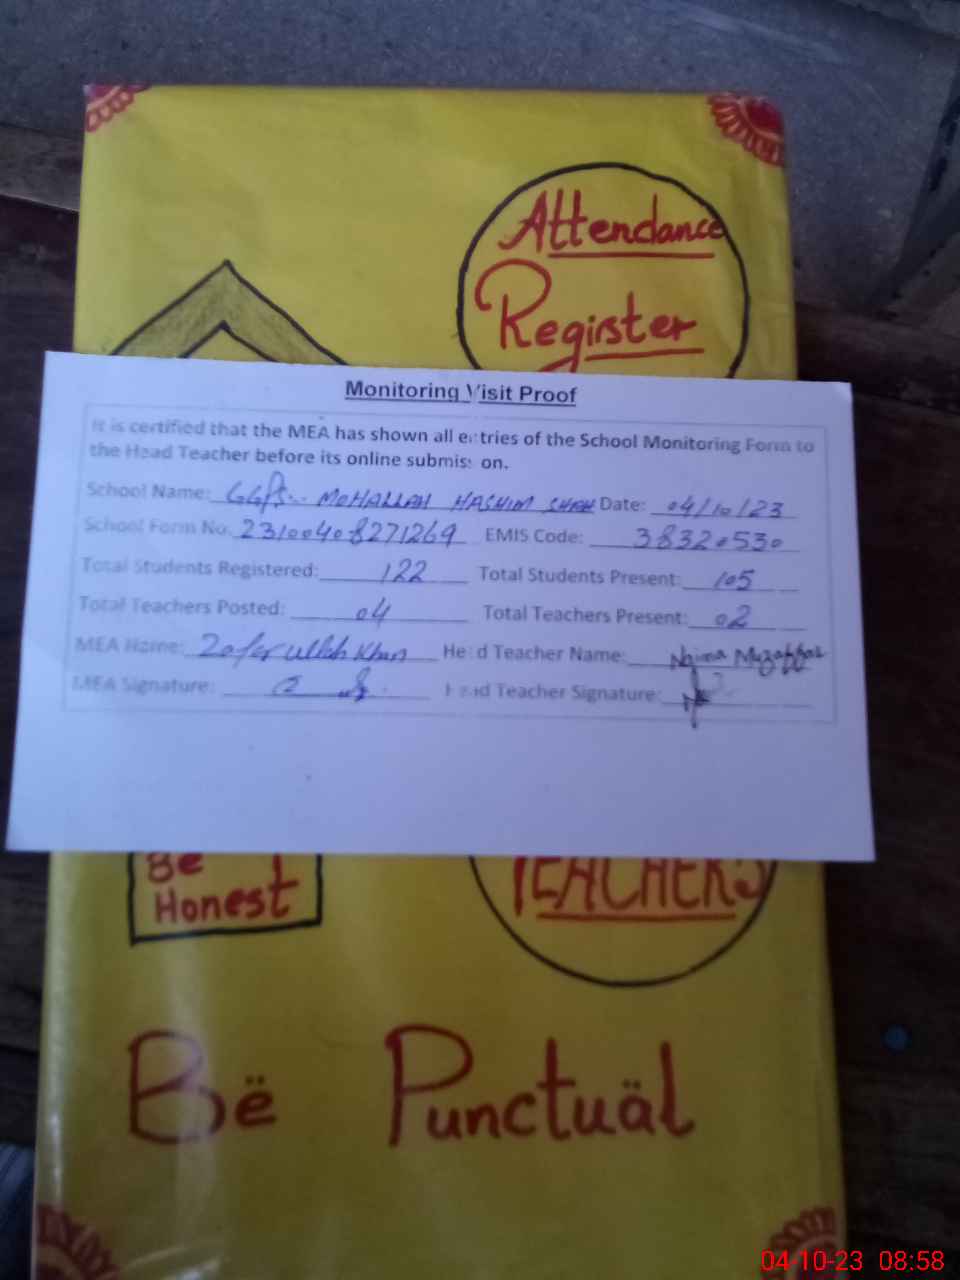 Attendance
Register
Monitoring Visit Proof
It is certified that the MEA has shown all entries of the School Monitoring Form to
the Head Teacher before its online submission.
School Name: GGPS.. MOHALLAH HASHIM SHAH Date: 04/10/23
School Form No. 23100408271269 EMIS Code: 38320530
Total Students Registered: 122 Total Students Present: 105
Total Teachers Posted: 04 Total Teachers Present: 02
MEA Name: Zafar ullah Khan Head Teacher Name: Najma Muzaffar
MEA Signature: Head Teacher Signature:
Be
Honest
TEACHER'S
Bë Punctuäl
04-10-23 08:58